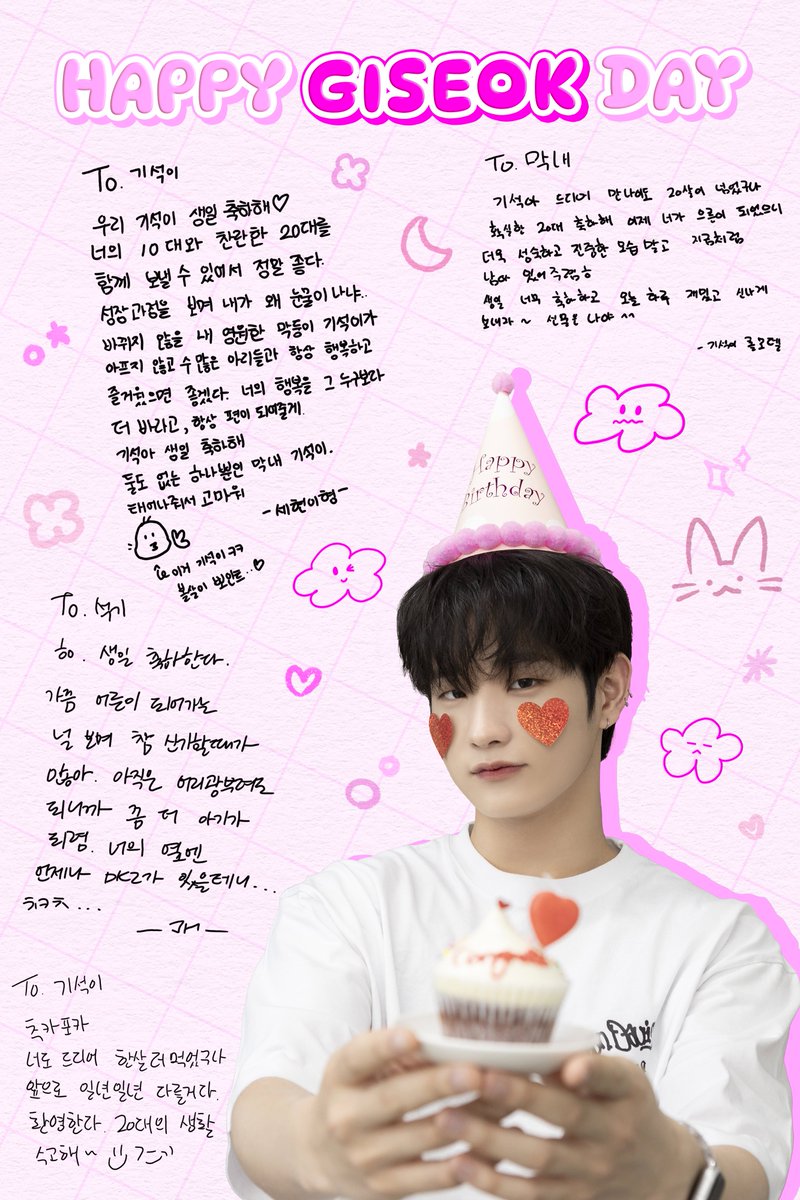 HAPPY GISEOK DAY
To. 기석이
우리 기석이 생일 축하해♡
너의 10대와 찬란한 20대를
함께 보낼 수 있어서 정말 좋다.
성장과정을 보며 내가 왜 눈물이 나냐..
바뀌지 않을 내 영원한 막둥이 기석이가
아프지 않고 수많은 아리들과 항상 행복하고
즐거웠으면 좋겠다. 너의 행복을 그 누구보다
더 바라고, 항상 편이 되어줄게.
기석아 생일 축하해
둘도 없는 하나뿐인 막내 기석이.
태어나줘서 고마워
-세현이형-
이거 기석이 ㅋㅋ
볼살이 뽀인트..♡
To. 막내
기석아 드디어 만나이도 20살이 넘었구나
확실한 20대 축하해 이제 너가 으른이 되었으니
더욱 성숙하고 진중한 모습 말고 지금처럼
남아 있어주렴ㅎ
생일 너무 축하하고 오늘 하루 재밌고 신나게
보내자~ 선물은 나야 ^^
- 기석이 롤모델
Happy
Birthday
To. 석기
흠. 생일 축하한다.
가끔 어른이 되어가는
널 보며 참 신기할때가
많아. 아직은 어리광부려도
되니까 좀 더 아기가
되렴. 너의 옆엔
언제나 DKZ가 있을테니...
ㅊㅋㅊ...
To. 기석이
츄카포카
너도 드디어 한살 더 먹었구나
앞으로 일년일년 다를거다.
환영한다. 20대의 생활
수고해~